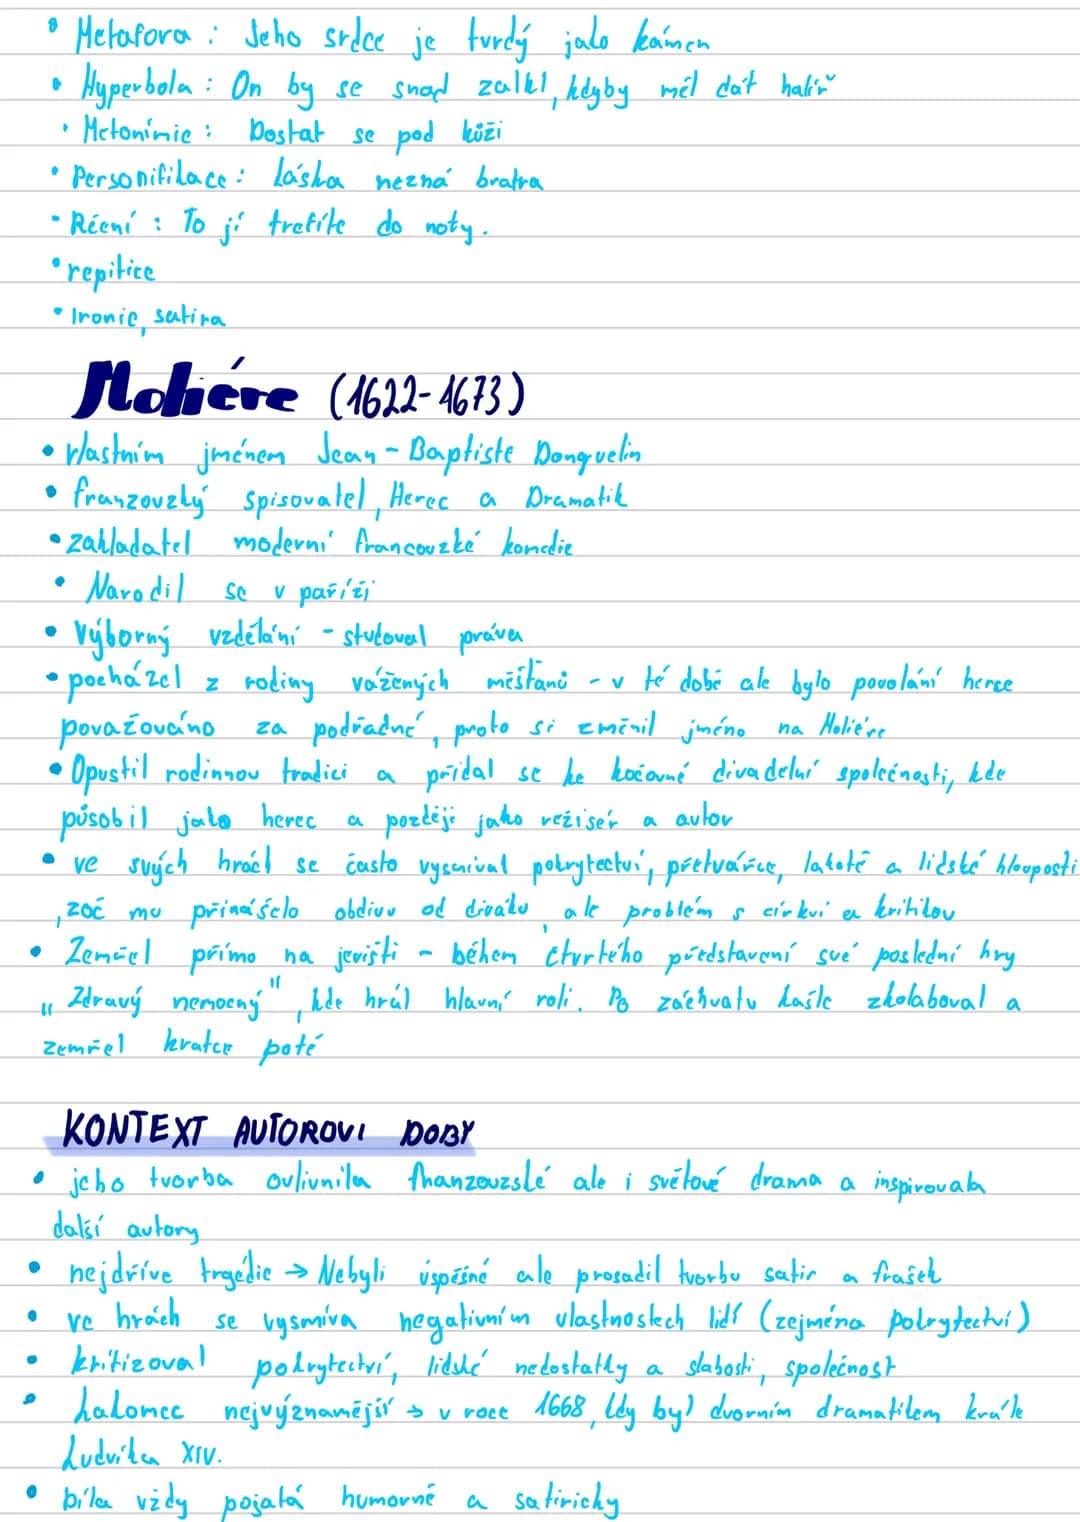 • Metafora : Jeho srdce je tvrdý jako kámen
• Hyperbola : On by se snad zalkl, kdyby měl dát halíř
• Metonímie : Dostat se pod kůži
• Personifikace : Láska nezná bratra
• Rčení : To jí trefíte do noty.
• repitice
• Ironie, satira
Moliére (1622-1673)
• vlastním jménem Jean-Baptiste Donquelin
• franzouzký spisovatel, Herec a Dramatik
• zakladatel moderní francouzké komedie
• Narodil se v paříži
• Výborný vzdělání - studoval práva
• pocházel z rodiny vážených měšťanů - v té době ale bylo povolání herce
považováno za podřadné, proto si změnil jméno na Moliére
• Opustil rodinnou tradici a přidal se ke kočovné divadelní společnosti, kde
působil jako herec a později jako režisér a autor
• ve svých hrách se často vysmíval pokrytectví, přetvářce, lakotě a lidské hlouposti
, zoč mu přinášelo obdivu od diváku, ale problém s církví a kritikou
• Zemřel přímo na jevišti - během čtvrtého představení své poslední hry
„ Zdravý nemocný", kde hrál hlavní roli. Po záchvatu kašle zkolaboval a
zemřel kratce poté
KONTEXT AUTOROVI DOBY
• jeho tvorba ovlivnila franzouzské ale i světové drama a inspirovala
další autory
• nejdříve tragédie → Nebyli úspěšné ale prosadil tvorbu satir a frašek
• ve hrách se vysmíva negativním vlastnostech lidí (zejména pokrytectví)
• kritizoval pokrytectví, lidské nedostatky a slabosti, společnost
• Lakomec nejvýznamější → v roce 1668, kdy byl dvorním dramatikem krále
Ludvíka XIV.
• bíla vždy pojatá humorně a satiricky